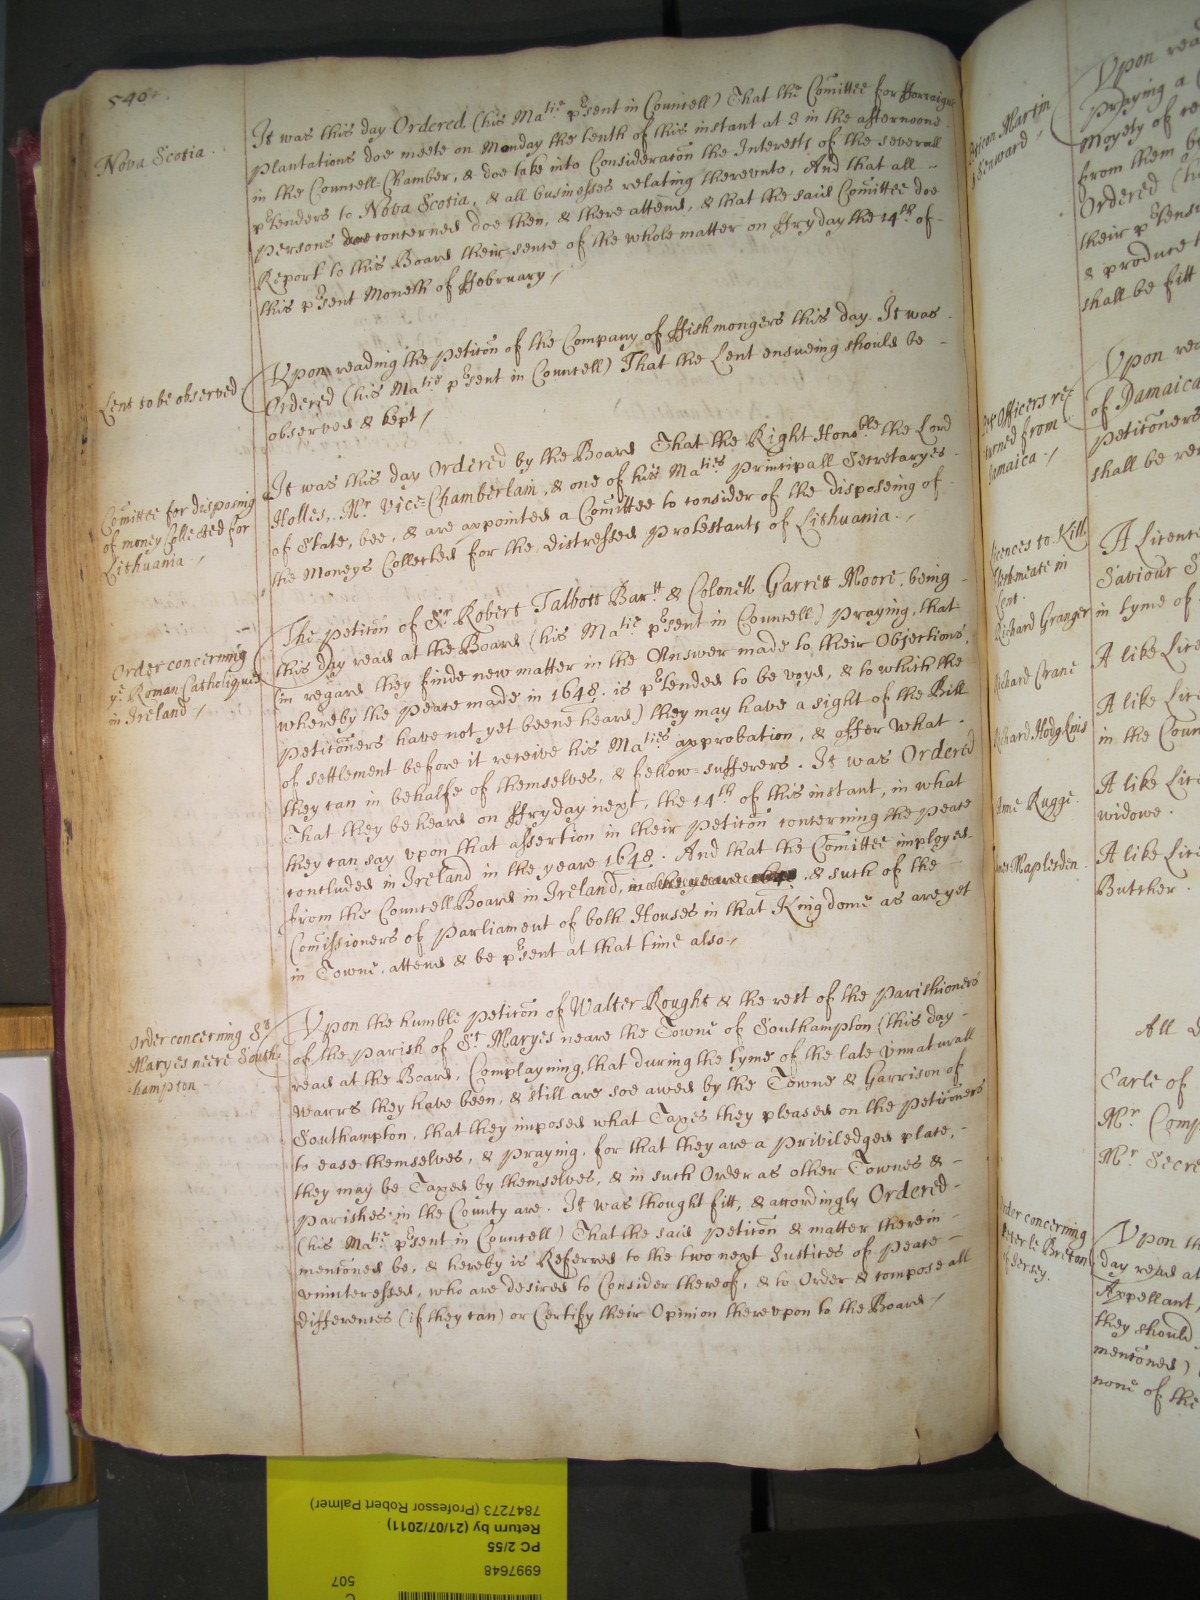 546
Nova Scotia
It was this day Ordered (his Matie prsent in Councell) That the Comittee for fforraigne
plantations doe meete on Monday the tenth of this instant at 3 in the afternoone
in the Councell-Chamber, & doe take into Consideration the Interests of the severall
prtenders to Nova Scotia, & all businesses relating therevnto, And that all
persons concerned doe then, & there attend, & that the said Comittee doe
Report to this Board their sence of the whole matter on ffryday the 14th of
this prsent Moneth of ffebruary
Lent to be observed
Vpon reading the peticon of the Company of ffishmongers this day. It was
Ordered (his Matie prsent in Councell) That the Lent ensueing should be
observed & kept
Comittee for disposing
of money Collected for
Lithuania
It was this day Ordered by the Board That the Right Honoble the Lord
Holles, Mr Vice-Chamberlain, & one of his Maties Principall Secretaryes
of State, bee, & are appointed a Comittee to consider of the disposeing of
the Moneys Collected for the distressed Protestants of Lithuania
Order concerning
ye Roman Catholiques
in Ireland
The peticon of Sr Robert Talbott Bartt & Colonell Garrett Moore, being
this day read at the Board (his Matie prsent in Councell) Praying, that
(in regard they finde new matter in the Answer made to their Objections,
whereby the Peace made in 1648. is prtended to be voyd, & to which the
Peticoners have not yet beene heard) they may have a sight of the Bill
of settlement before it receive his Maties approbation, & offer what
they can in behalfe of themselves, & fellow-sufferers. It was Ordered
That they be heard on ffryday next, the 14th of this instant, in what
they can say vpon that assertion in their Peticon concerning the peace
concluded in Ireland in the yeare 1648. And that the Comittee imployed
from the Councell Board in Ireland, in the yeare 1648 & such of the
Comissioners of Parliament of both Houses in that Kingdome as are yet
in Towne, attend & be prsent at that time also
Order concerning St
Maryes neere South-
-hampton
Vpon the humble peticon of Walter Rought & the rest of the parishioners
of the parish of St Maryes neare the Towne of Southampton (this day
read at the Board, Complayning, that during the tyme of the late vnnaturall
warrs they have been, & still are soe awed by the Towne & Garrison of
Southampton, that they imposed what Taxes they pleased on the peticoners
to ease themselves, & praying, for that they are a priviledged place,
they may be Taxed by themselves, & in such Order as other Townes &
parishes in the County are. It was thought fitt, & accordingly Ordered
(his Matie prsent in Councell) That the said peticon & matter therein
menconed be, & hereby is Referred to the two next Justices of peace
vninteressed, who are desired to Consider thereof, & to Order & compose all
differences (if they can) or Certify their Opinion therevpon to the Board
Martin
Seaward
Vpon
praying a
Moyety of
from them
Ordered
their prtens
& produce
shall be fitt
Officers re-
turned from
Jamaica
Vpon
of Jamaica
Peticoners
shall be
Licences to Kill
fleshmeate in
Lent.
Richard Granger
A Licence
Saviour
in tyme of
Richard Crane
A like
Richard Hodgkins
A like
in the Coun
Anne Rugge
A like
widowe.
Maplesden
A like
Butcher.
All
Earle of
Mr Comp
Mr Secre
Order concerning
le Breton
of Jersey.
Vpon
day read at
Appellant,
they should
mencóned)
none of the
6997648
PC 2/55
Return by (21/07/2011)
7847273 (Professor Robert Palmer)
507